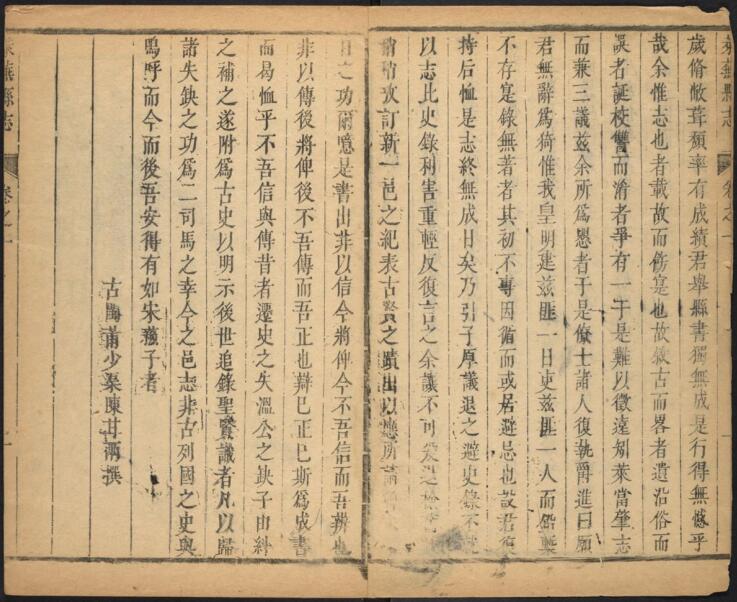 歲脩敝葺頽率有成績君舉縣書獨無成是行得無憾乎
哉余惟志也者載故而傍寔也故儗古而畧者遺沿俗而
誤者誕校讐而淆者爭有一于是難以徵遠矧萊當肇志
而兼三議兹余所為懇者于是僚士諸人復執爵進曰願
君無辭為猗惟我皇明建兹匪一日吏兹匪一人而
不存寔錄無著者其初不專因循而或居避忌也設君復
持后恤是志終無成日矣乃引子原議退之避史錄不
以志此史錄利害重輕反復言之余讓不可
稍稍攷訂新一邑之紀表古賢之蹟出以應
日之功爾噫是書出非以信今將俾今不吾信而吾辨也
非以傳後將俾後不吾傳而吾正也辯巳正巳斯為成書
而曷恤乎不吾信與傳昔者遷史之失溫公之缺子由糾
之補之遂附為古史以明示後世追錄聖賢識者凡以歸
諸失缺之功為二司馬之幸今之邑志非古列國之史與
嗚呼而今而後吾安得有如宋蘓子者
古閩莆少渠陳甘雨撰
萊蕪縣志
卷之一